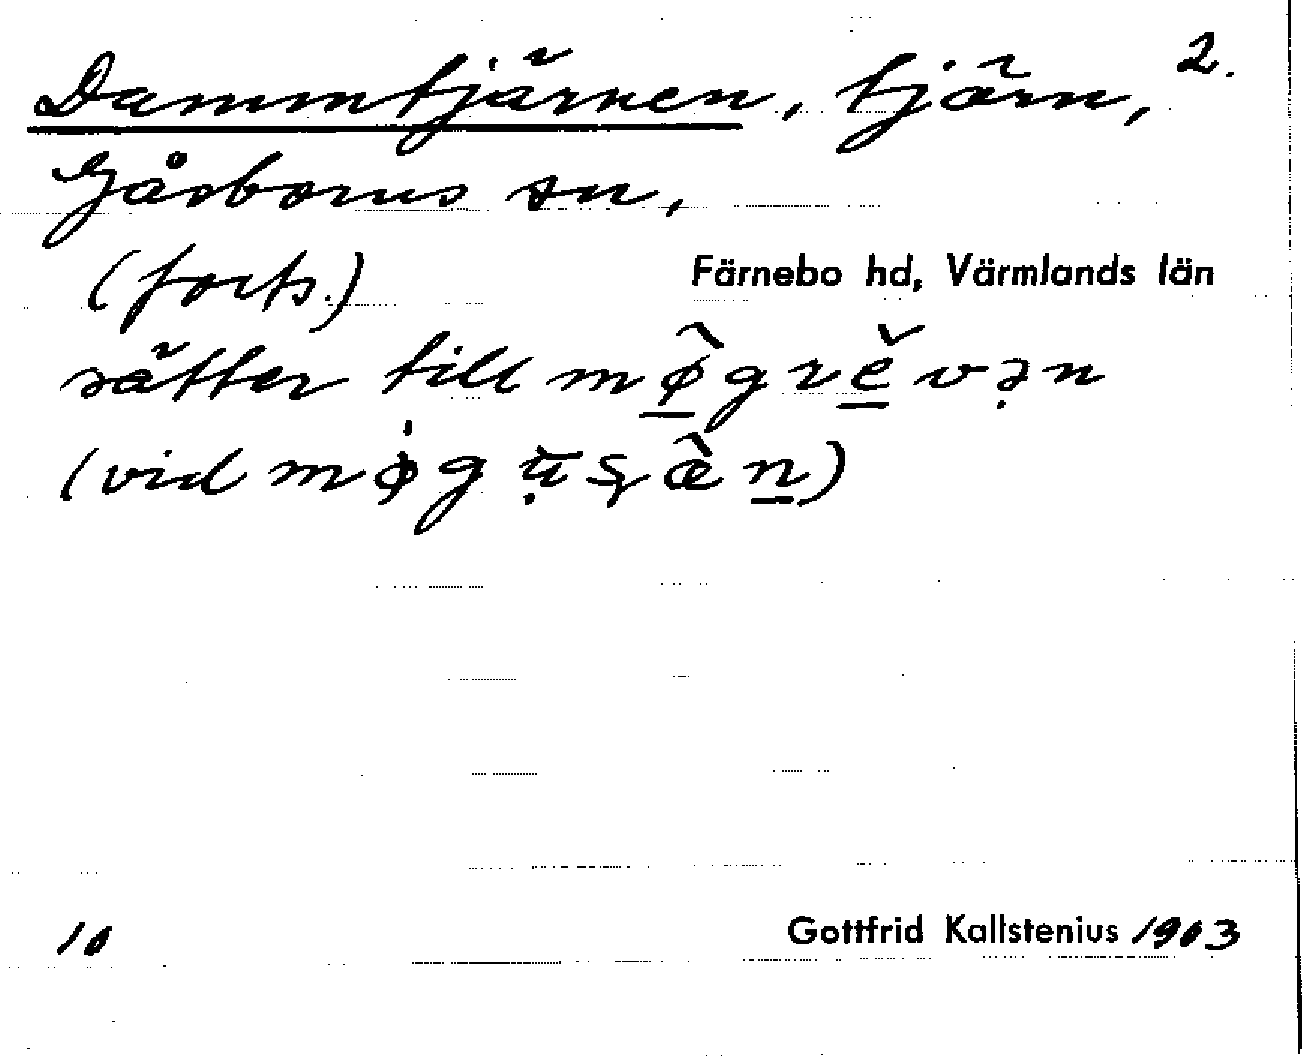 Dammtjärnen, tjärn, 2.
Gåsborns sn,
(forts.)
Färnebo hd, Värmlands län
sätter till mø̂grĕvən
(vid
10
Gottfrid Kallstenius 1903